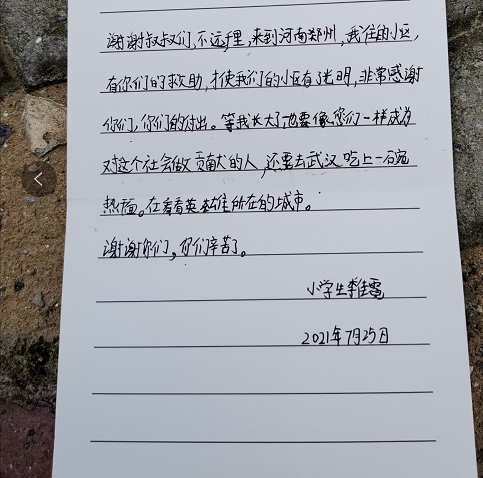 谢谢叔叔们,不远千里,来到河南郑州,我住的小区,
有你们的救助,才使我们的小区有了光明,非常感谢
你们,你们的付出。等我长大了也要像您们一样成为
对这个社会做贡献的人,还要去武汉吃上一碗
热面。在看看英雄所在的城市。
谢谢你们,你们辛苦了。
小学生
2021年7月25日